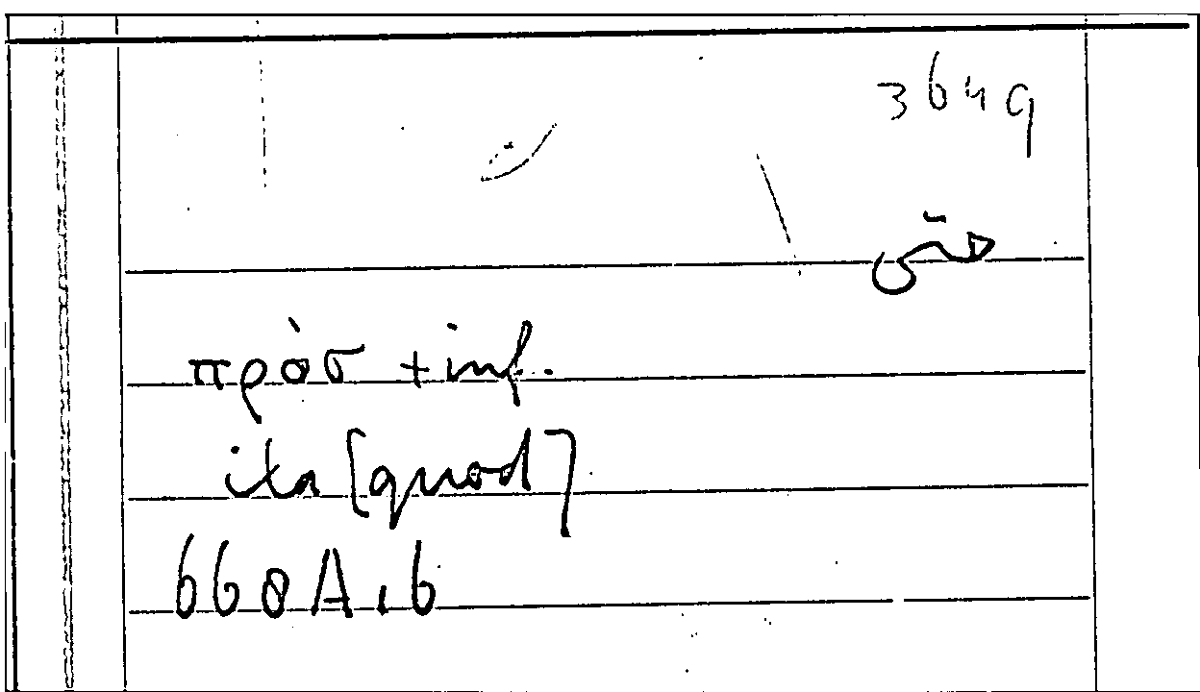 3649
πρὸσ + inf.
ita [quod]
668A16